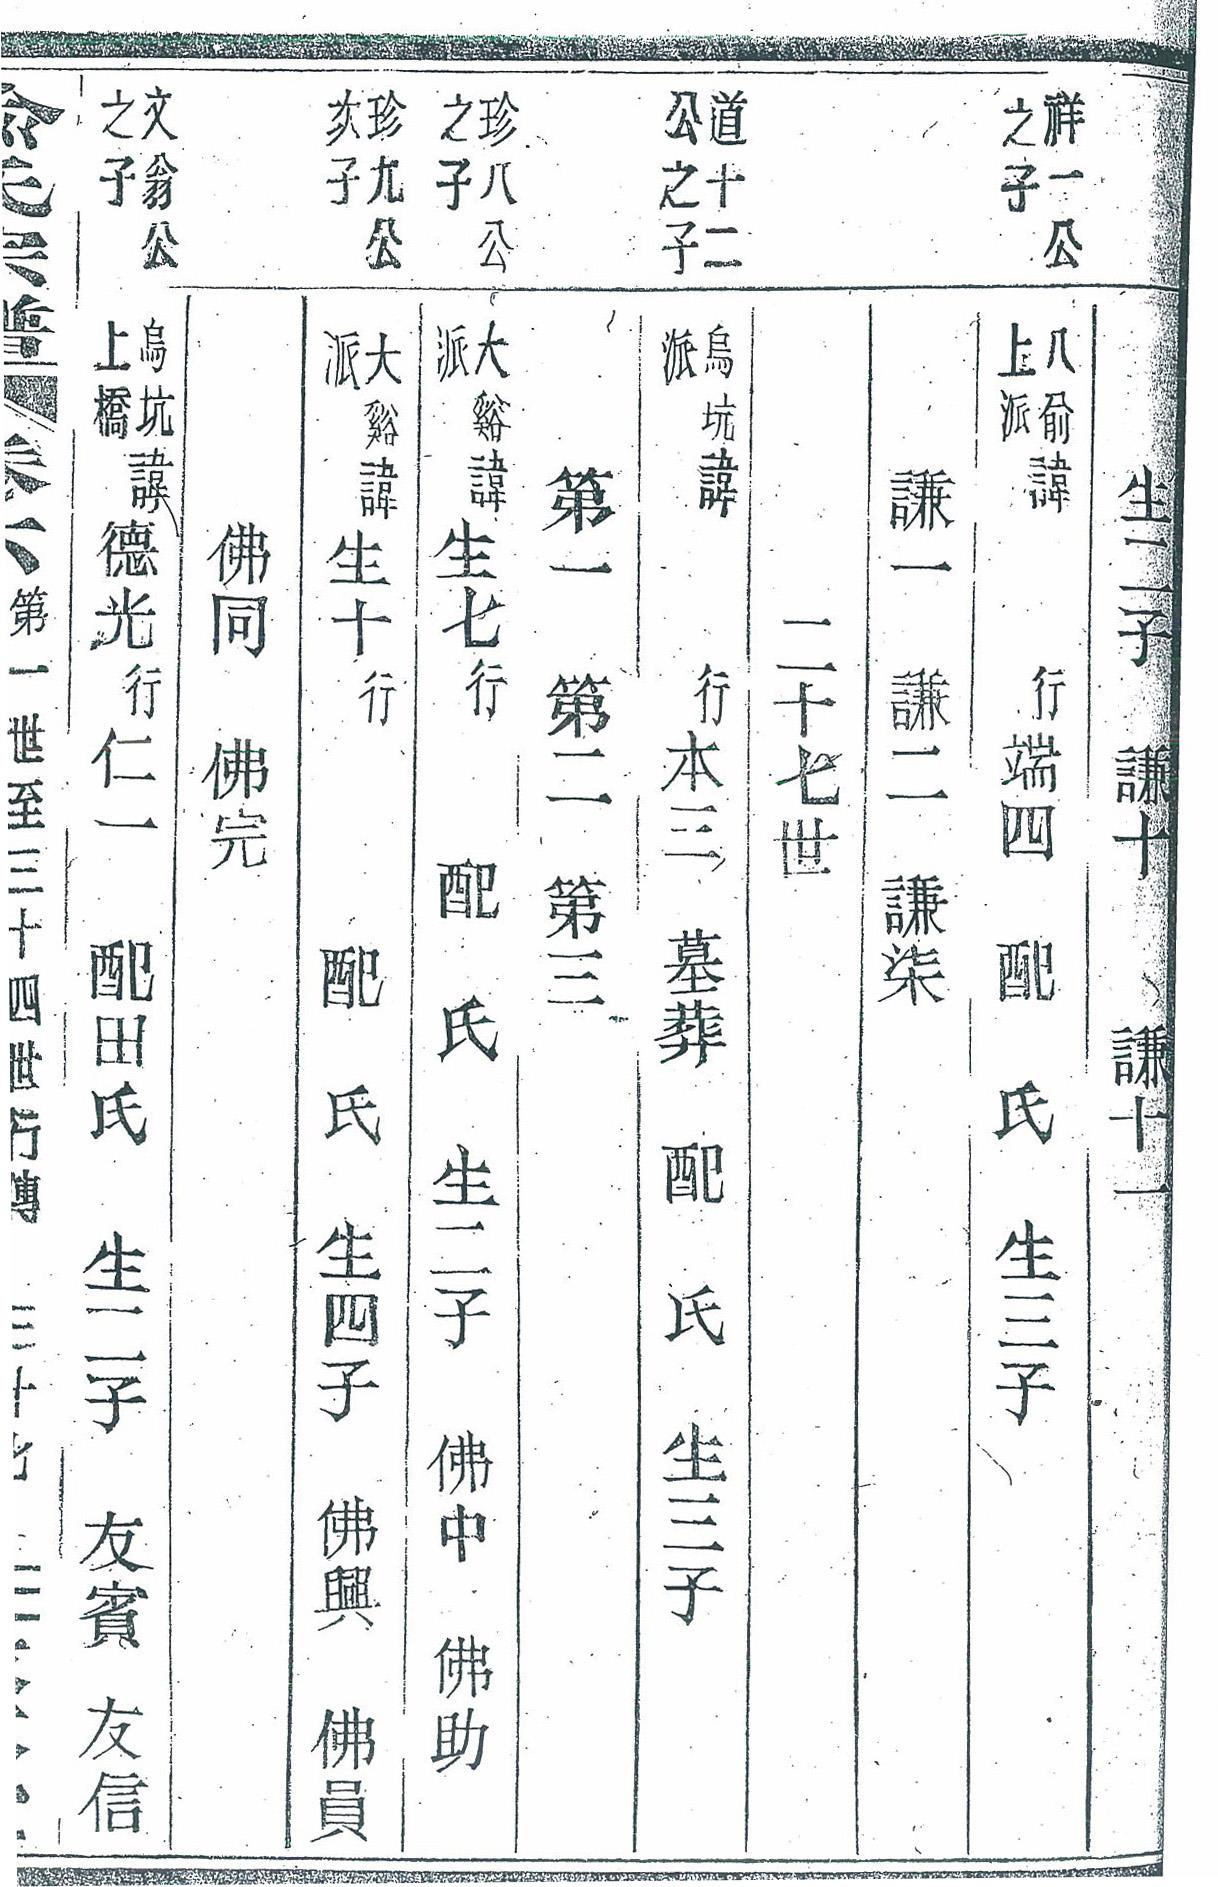 生二子　謙十　謙十一
祥一公之子
八俞上派諱　行端四　配　氏　生三子
謙一　謙二　謙柒
二十七世
道十二公之子
烏坑派諱　行本三　墓葬　配　氏　生三子
第一　第二　第三
珍八公之子
大谿派諱生七行　配　氏　生二子　佛中　佛助
珍九公次子
大谿派諱生十行　配　氏　生四子　佛興　佛員
佛同　佛完
文翁公之子
烏坑上橋諱德光行仁一　配田氏　生二子　友賓　友信
俞氏宗譜　卷六　第一世至三十四世行傳　三十七